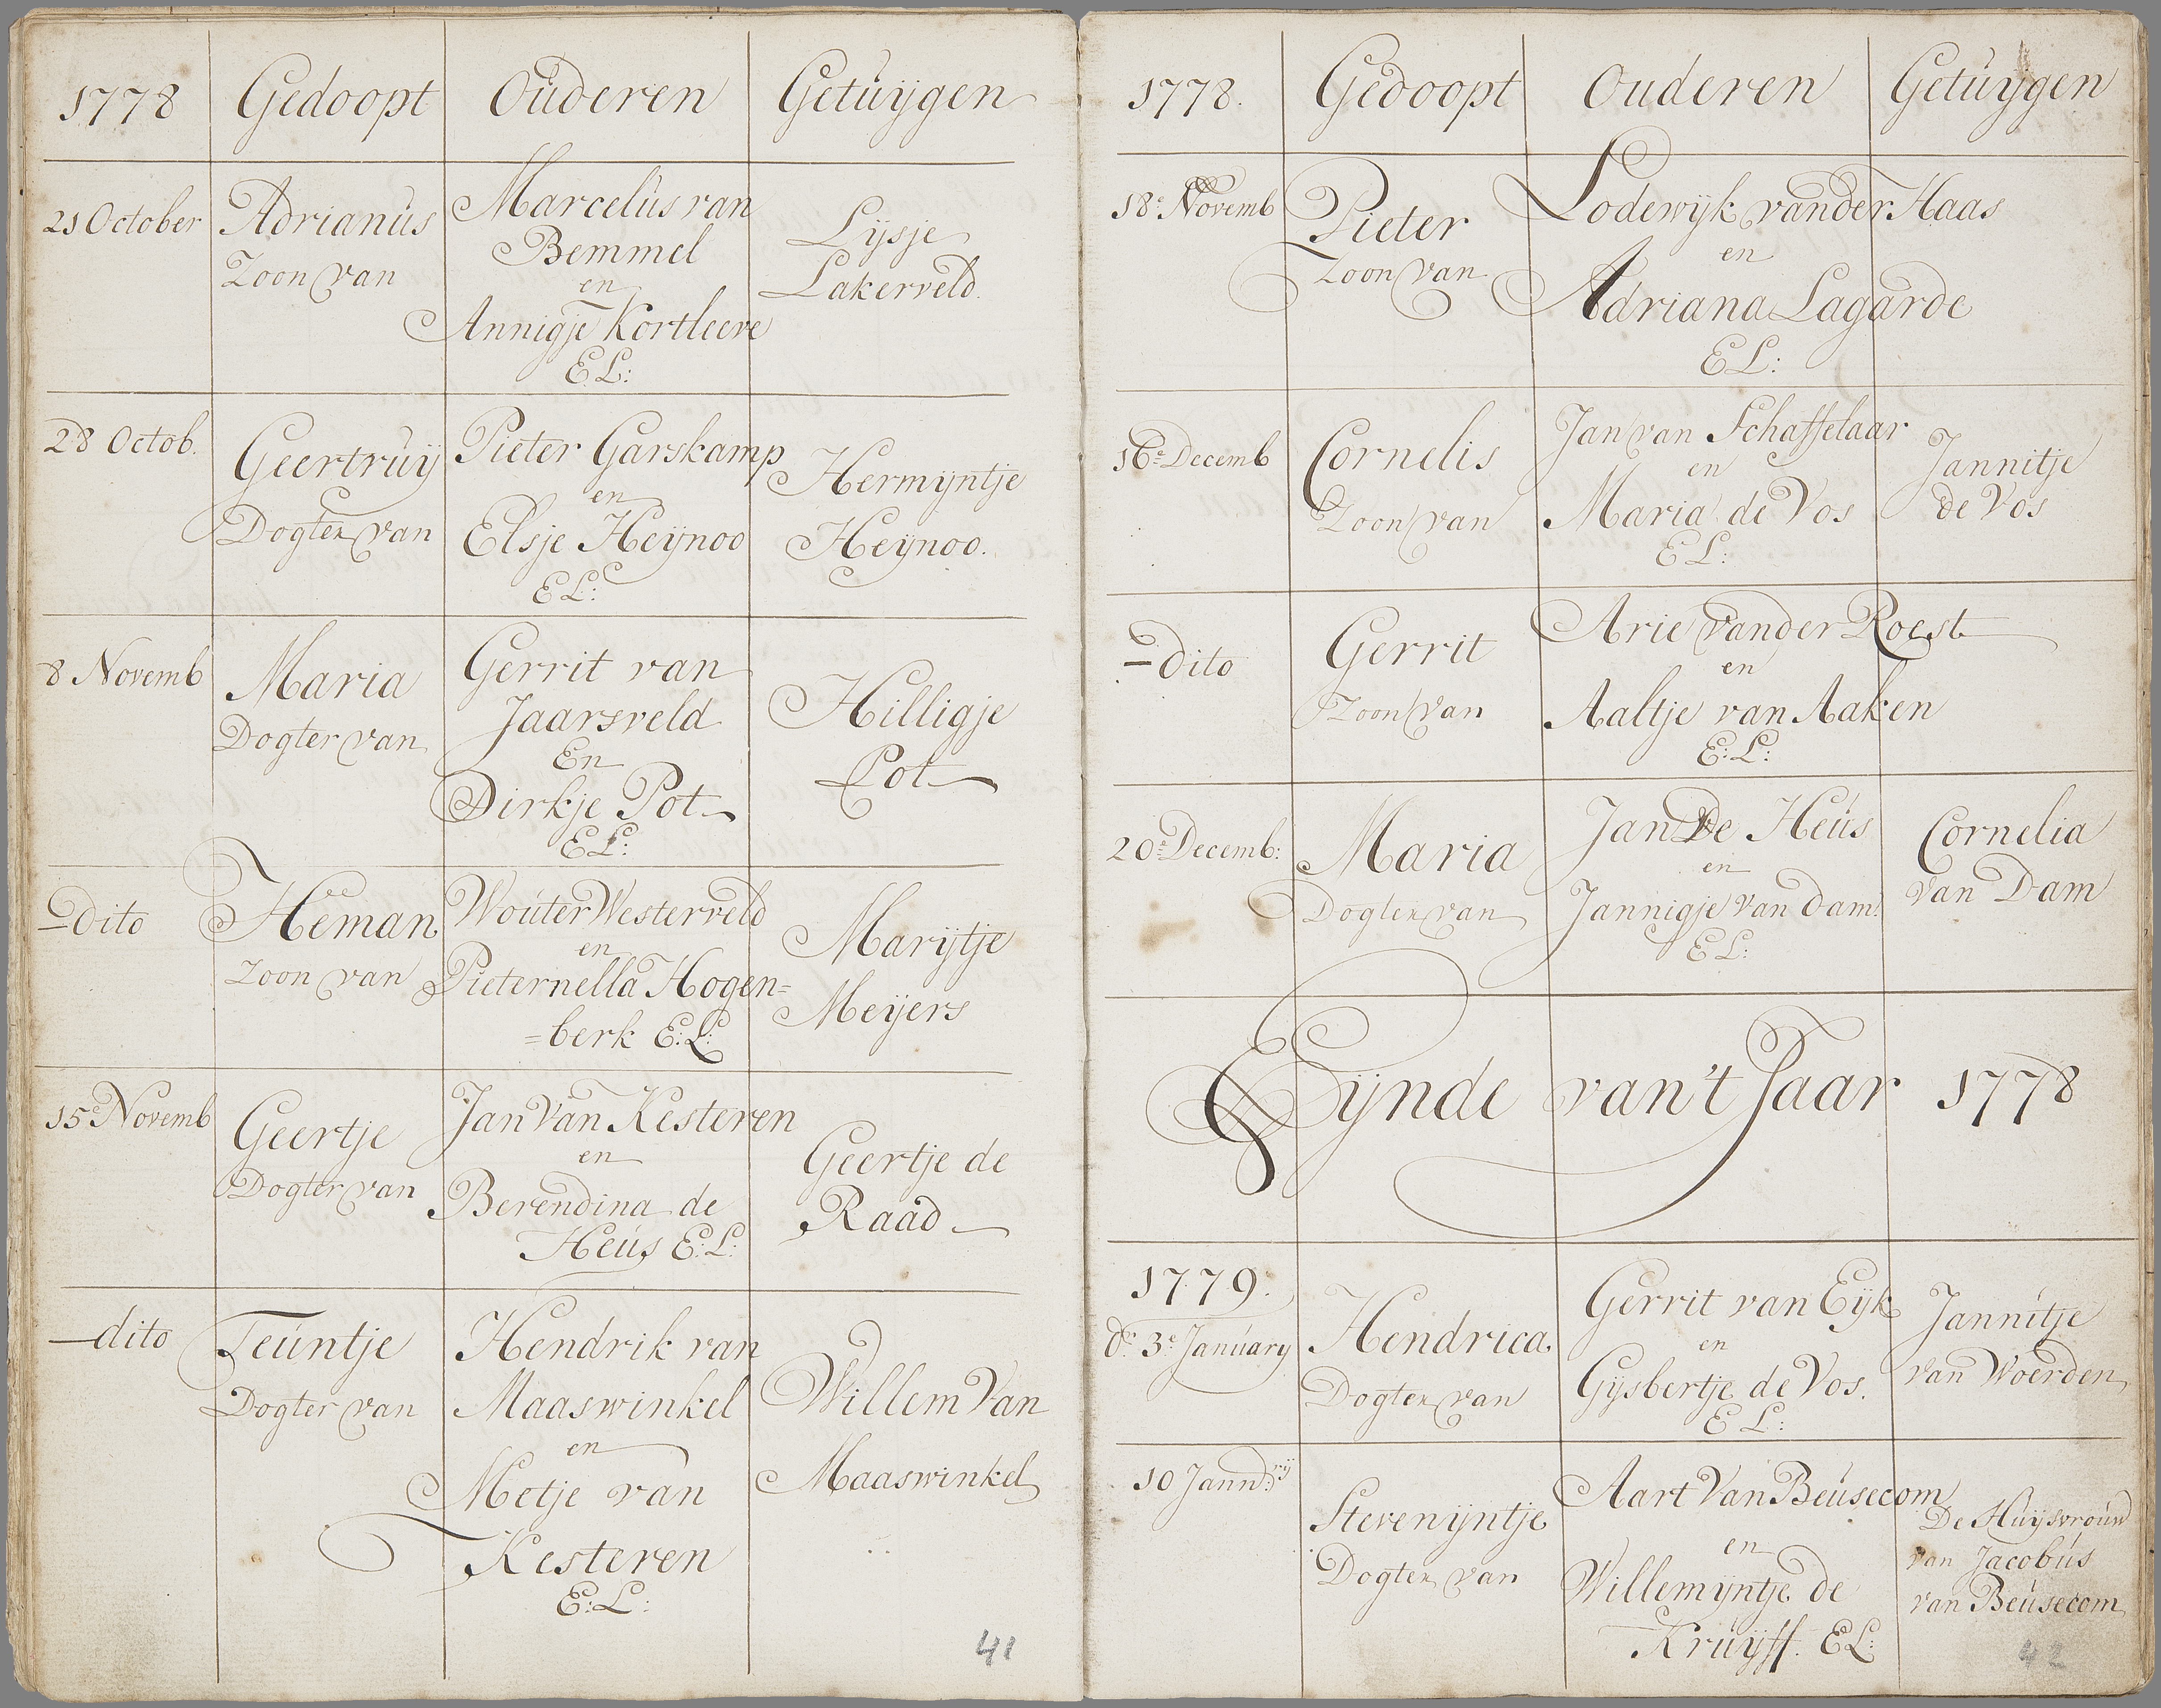 1778 Gedoopt Ouderen Getuijgen
21 October Adrianus Marcelus van
Zoon van Bemmel Lijsje
en Lakerveld.
Annigje Kortleeve
E L:
28 Octob. Geertruij Pieter Garskamp Hermijntje
en
Dogter van Elsje Heijnoo Heijnoo.
E L:
8 Novemb Maria Gerrit van Hilligje
Dogter van Jaarsveld
En Pot
Dirkje Pot
E L:
dito Heman Wouter Westerveld Marijtje
en
Zoon van Pieternella Hogen=
=berk E: L: Meijers
15e Novemb Geertje Jan Van Kesteren Geertje de
en
Dogter van Berendina de Raad
Heus E: L:
dito Teuntje Hendrik van Willem Van
Dogter van Maaswinkel
en
Metje van Maaswinkel
Kesteren
E: L:
41
1778. Gedoopt Ouderen Getuijgen
18e Novemb Pieter Lodewijk vander Haas
Zoon van en
Adriana Lagarde
E L:
16e Decemb Cornelis Jan van Schaffelaar Jannitje
en
Zoon van Maria de Vos de Vos
E L:
dito Gerrit Arie vander Roest
en
Zoon van Aaltje van Aaken
E: L:
20e Decemb: Maria Jan De Heus Cornelia
en
Dogter van Jannigje Van dam. Van Dam
E L:
Eijnde van't Jaar 1778
1779.
dn 3e January Hendrica Gerrit van Eijk Jannitje
en
Dogter van Gijsbertje de Vos. Van Woerden
E L:
10 Jannd:rij Stevenijntje Aart Van Beusecom De Huijsvrouw
en van Jacobus
Dogter van Willemijntje de van Beusecom
Kruijff. E L:
42